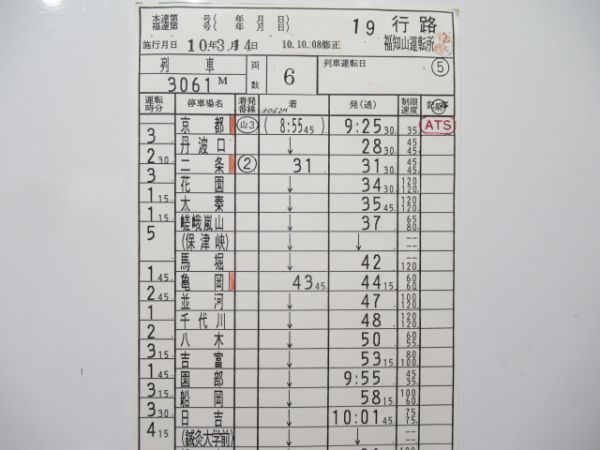 本達第 号( 年 月 日
福達第 号( 年 月 日
19 行路
施行月日 10年3月14日 10.10.08修正 福知山運転所
列車 両数 6 列車運転日 ⑤
3061M
運転時分 停車場名 着発番線 3062M 着 発(過) 制限速度 記事
京都 山3 (8:55 45) 9:25 30 35 ATS
3
丹波口 ↓ 28 30 45 45
2 30
二条 ② 31 31 30 45 45
3
花園 ↓ 34 30 120 120
1 15
太秦 ↓ 35 45 120 120
1 15
嵯峨嵐山 ↓ 37 65 80
5
(保津峡) ↓ ↓ -- --
馬堀 ↓ 42 -- 120
1 45
亀岡 43 45 44 15 60 60
2 45
並河 ↓ 47 100 120
1
千代川 ↓ 48 120 120
2
八木 ↓ 50 60 55
3 15
吉富 ↓ 53 15 80 100
1 45
園部 ↓ 9:55 45 35
3 15
船岡 ↓ 58 15 100 60
3 30
日吉 ↓ 10:01 45 75 75
4 15
(鍼灸大学前) ↓ ↓ 100 100